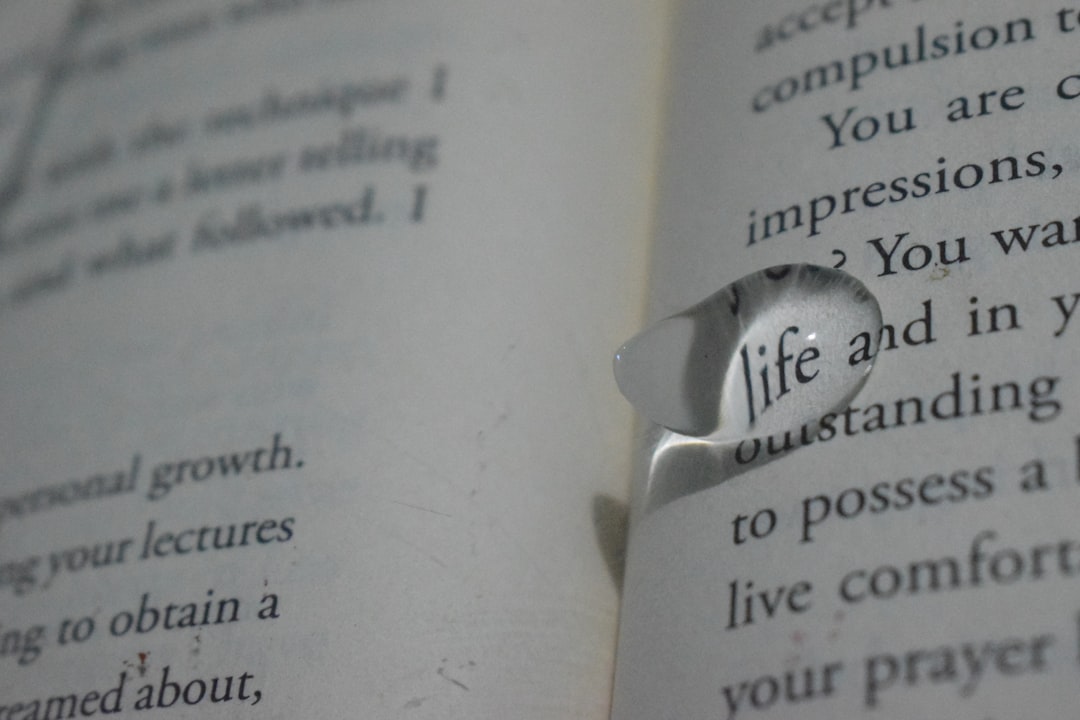 with the technique I
me a letter telling
and what followed. I
personal growth.
ng your lectures
ing to obtain a
reamed about,
accept
compulsion to
You are c
impressions,
? You wan
life and in y
outstanding
to possess a l
live comfort
your prayer